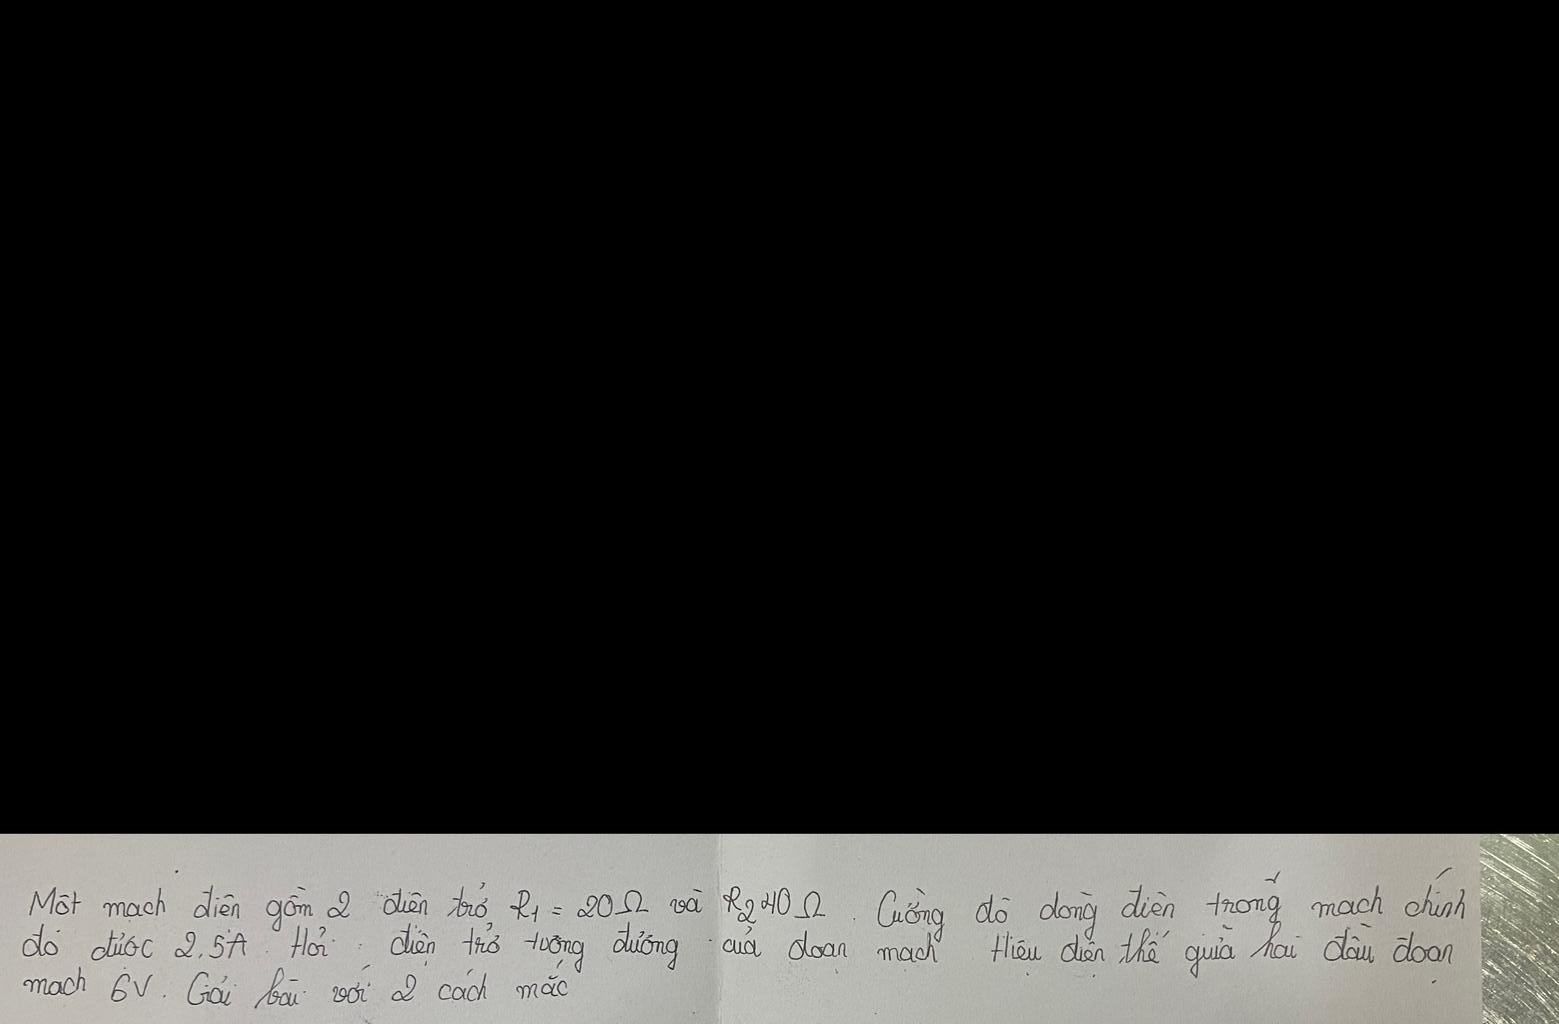 Một mạch điện gồm 2 điện trở R1 = 20Ω và R2 40Ω. Cường độ dòng điện trong mạch chính
đo được 2,5A. Hỏi: điện trở tương đương của đoạn mạch Hiệu điện thế giữa hai đầu đoạn
mạch 6V. Giải bài với 2 cách mắc